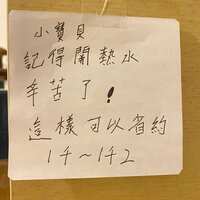 小寶貝
記得開熱水
辛苦了!
這樣可以省約
1千~1千2